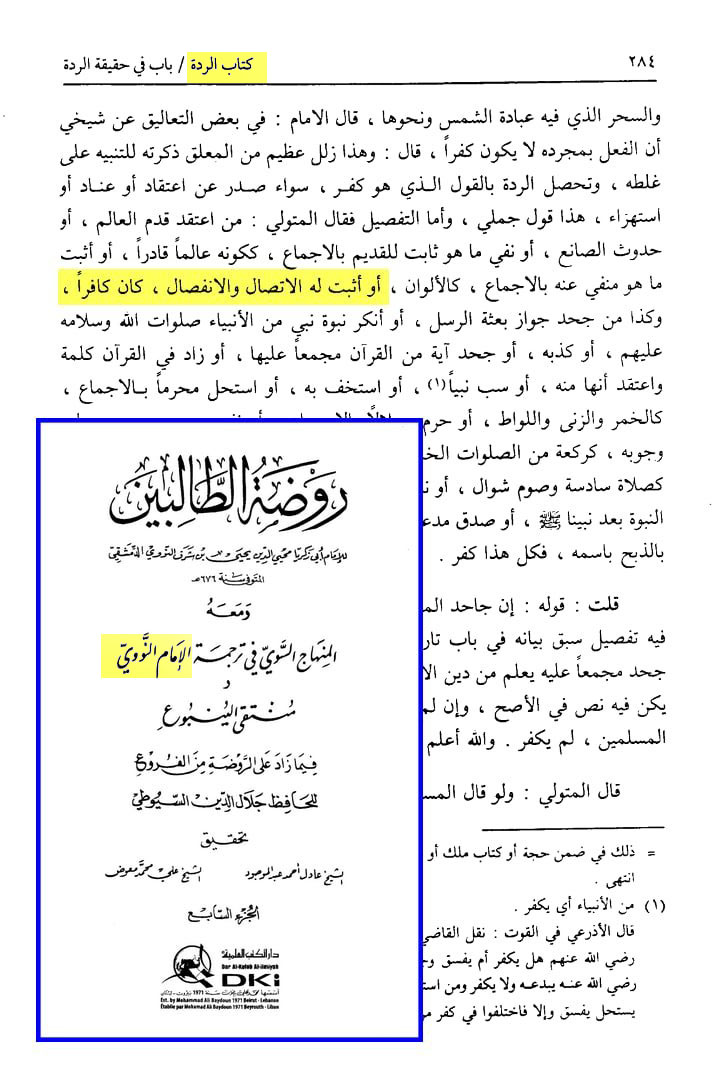 كتاب الردة / باب في حقيقة الردة
٢٨٤
والسحر الذي فيه عبادة الشمس ونحوها ، قال الامام : في بعض التعاليق عن شيخي
أن الفعل بمجرده لا يكون كفراً ، قال : وهذا زلل عظيم من المعلق ذكرته للتنبيه على
غلطه ، وتحصل الردة بالقول الـذي هو كفـر ، سواء صدر عن اعتقاد أو عناد أو
استهزاء ، هذا قول جملي ، وأما التفصيل فقال المتولي : من اعتقد قدم العالم ، أو
حدوث الصانع ، أو نفي ما هو ثابت للقديم بالاجماع ، ككونه عالماً قادراً ، أو أثبت
ما هو منفي عنه بالاجماع ، كالألوان ، أو أثبت له الاتصال والانفصال ، كان كافراً ،
وكذا من جحد جواز بعثة الرسل ، أو أنكر نبوة نبي من الأنبياء صلوات الله وسلامه
عليهم ، أو كذبه ، أو جحد آية من القرآن مجمعاً عليها ، أو زاد في القرآن كلمة
واعتقد أنها منه ، أو سب نبياً(١) ، أو استخف به ، أو استحل محرماً بـالاجماع ،
كالخمر والزنى واللواط ، أو حرم
وجوبه ، كركعة من الصلوات
كصلاة سادسة وصوم شوال ، أو
النبوة بعد نبينا ﷺ ، أو صدق
بالذبح باسمه ، فكل هذا كفر .
قلت : قوله : إن جاحد
فيه تفصيل سبق بيانه في باب
جحد مجمعاً عليه يعلم من دين
يكن فيه نص في الأصح ، وإن لم
المسلمين ، لم يكفر . والله أعلم
قال المتولي : ولو قال
= ذلك في ضمن حجة أو كتاب ملك أو
انتهى .
(١) من الأنبياء أي يكفر .
قال الأذرعي في القوت : نقل القاضي
رضي الله عنهم هل يكفر أم يفسق
رضي الله عنـه يبدعـه ولا يكفر ومن
يستحل يفسق وإلا فاختلفوا في كفر
روضة الطالبين
للإمام أبي زكريا محيي الدين يحيى بن شرف النووي الدمشقي
المتوفى سنة ٦٧٦هـ
ومعه
المنهاج السوي في ترجمة الإمام النووي
و
منتقى الينبوع
فيما زاد على الروضة من الفروع
للحافظ جلال الدين السيوطي
تحقيق
الشيخ عادل أحمد عبد الموجود الشيخ علي محمد معوض
الجزء السابع
دار الكتب العلمية
Dar Al-Kotob Al-ilmiyah
DKi
أسسها محمد علي بيضون سنة 1971 بيروت - لبنان
Est. by Mohammad Ali Baydoun 1971 Beirut - Lebanon
Établie par Mohamad Ali Baydoun 1971 Beyrouth - Liban